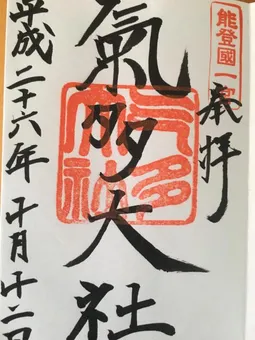 能登國一宮
奉拝
氣多大社
气多大社
平成二十六年十月十二日